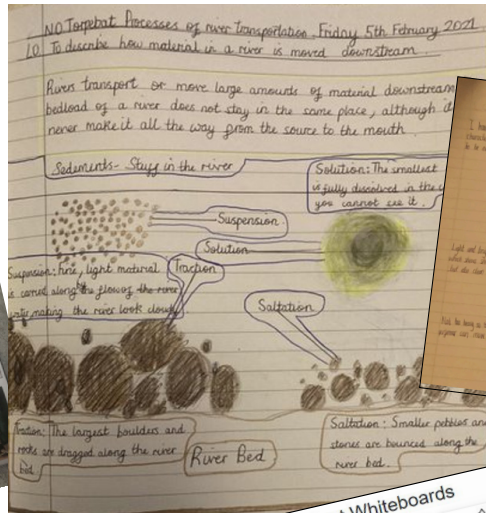 NO Torpebat Processes of river transportation Friday 5th February 2021
L.O. To describe how material in a river is moved downstream.
Rivers transport or move large amounts of material downstream
bedload of a river does not stay in the same place, although it
never make it all the way from the source to the mouth.
Sediments- Stuff in the river
Solution: The smallest
is fully dissolved in the
you cannot see it.
Suspension
Solution
Suspension: fine, light material
is carried along the flow of the river
making the river look cloudy
Traction
Saltation
Traction: The largest boulders and
rocks are dragged along the river
bed
River Bed
Saltation: Smaller pebbles and
stones are bounced along the
river bed.
Whiteboards